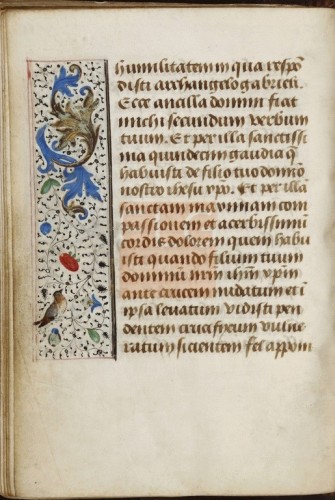 humilitatem in qua respō
disti archangelo gabrieli.
Ecce ancilla domini fiat
michi secundum verbum
tuum. Et per illa sanctissi
ma quindecim gaudia q̄
habuisti de filio tuo domīo
nostro ihesu xpo. Et per illā
sanctam maximam com
passionem et acerbissimū
cordis dolorem quem habu
isti quando filium tuum
dominū nr̄m ihm̄ xpm̄
ante crucem nudatum et ī
ipsa leuatum vidisti pen
dentem crucifixum vulne
ratum sicientem fel apponi